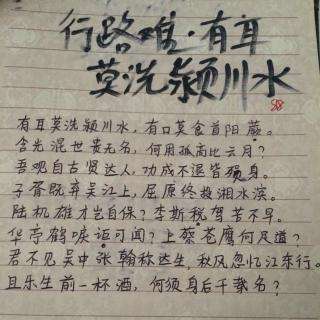 行路难·有耳
莫洗颍川水
有耳莫洗颍川水，有口莫食首阳蕨。
含光混世贵无名，何用孤高比云月？
吾观自古贤达人，功成不退皆殒身。
子胥既弃吴江上，屈原终投湘水滨。
陆机雄才岂自保？李斯税驾苦不早。
华亭鹤唳讵可闻？上蔡苍鹰何足道？
君不见吴中张翰称达生，秋风忽忆江东行。
且乐生前一杯酒，何须身后千载名？